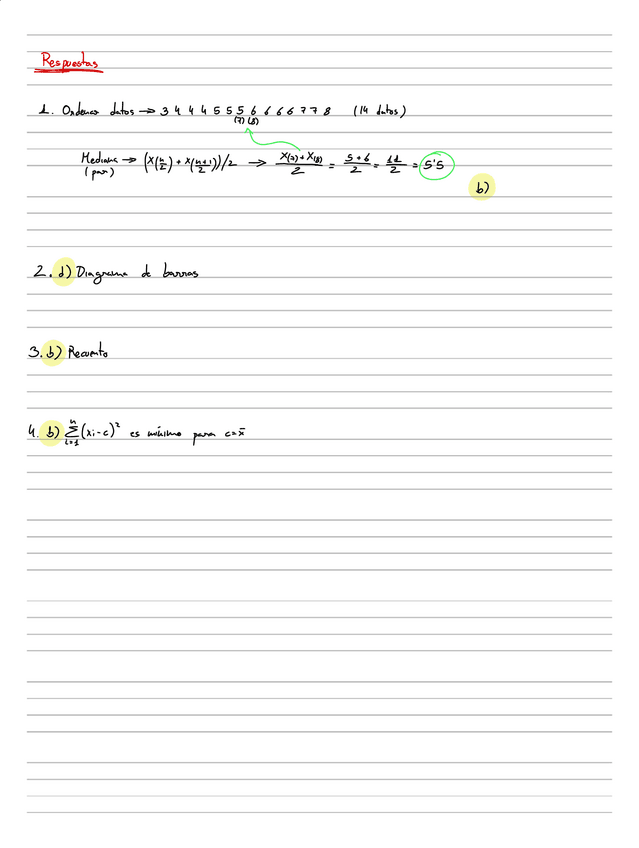 Respuestas
1. Ordenar datos → 3 4 4 4 5 5 5 6 6 6 6 7 7 8 (14 datos)
(7) (8)
Mediana → (X(n/2) + X(n+1/2))/2 → X(7)+X(8)/2 = 5+6/2 = 11/2 = 5'5
(par)
b)
2. d) Diagrama de barras
3. b) Recuento
4. b) ∑ⁿᵢ₌₁(xi-c)² es mínimo para c=x̄